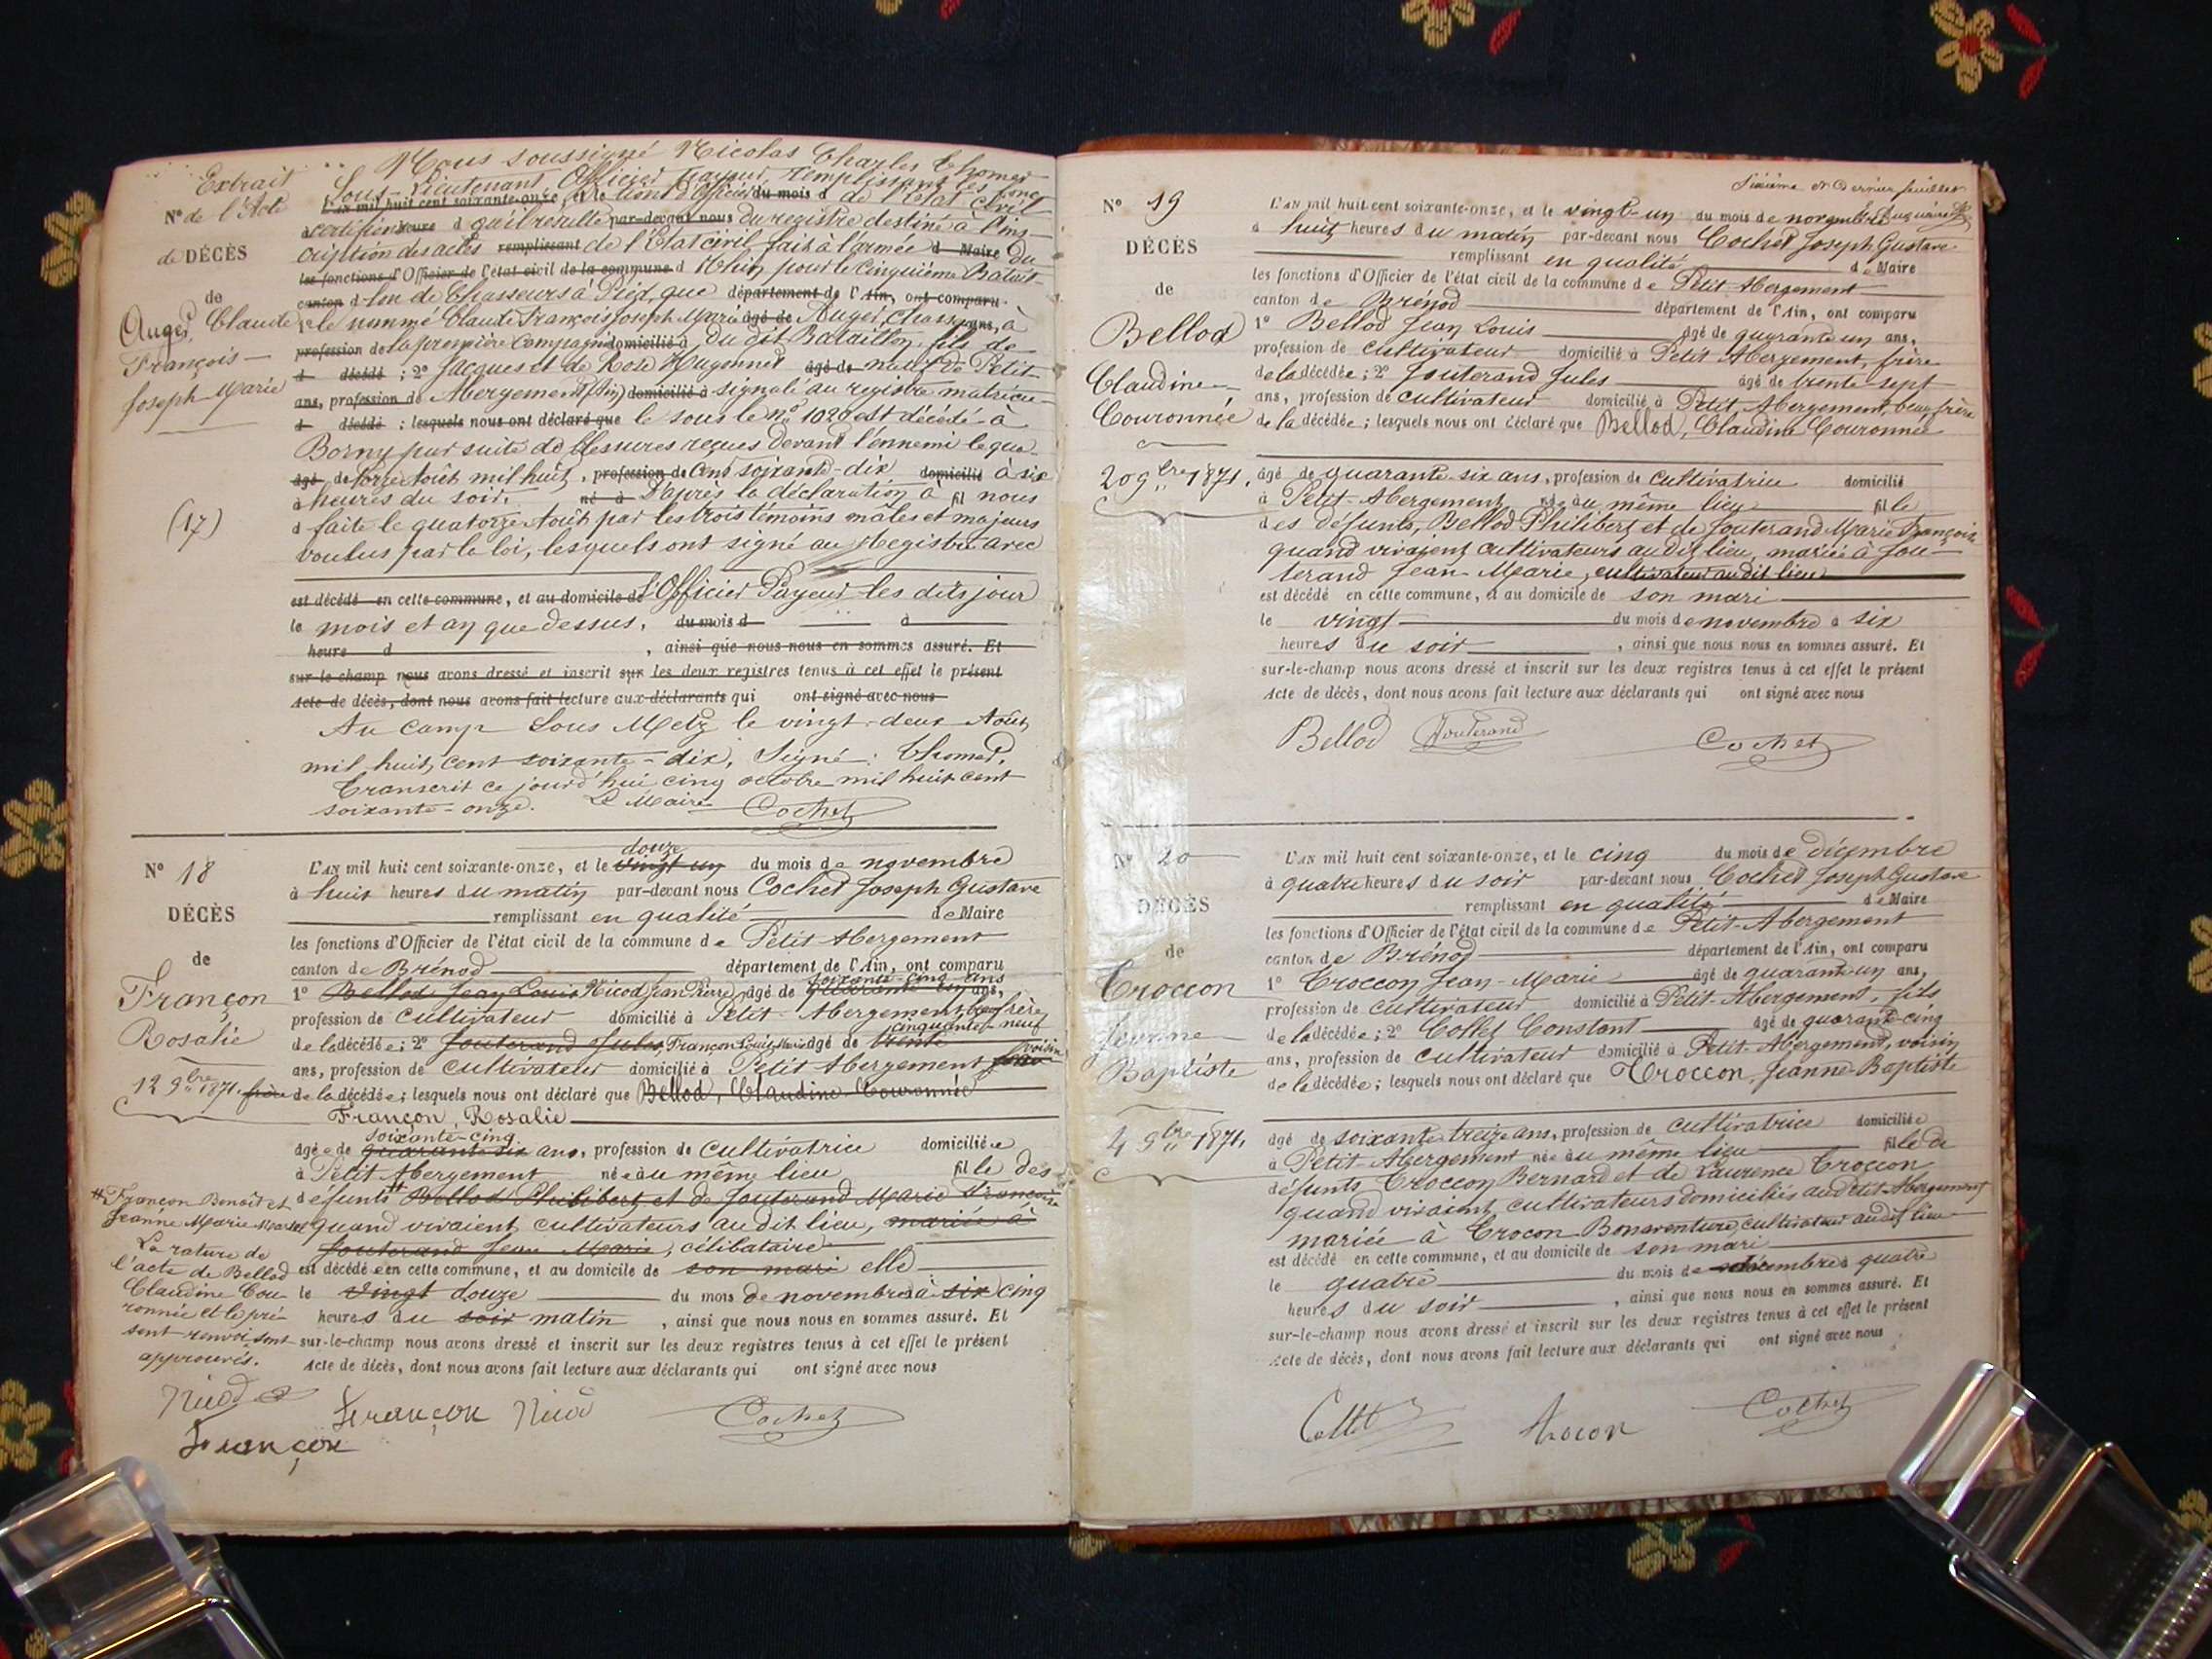 Extrait
N° de l'Acte
de DÉCÈS
de
Auger, Claude
François
Joseph-Marie
(17)
Nous soussigné Nicolas Charles Thomas
Sous-Lieutenant, Officier payeur, remplissant les fonc-
L'AN mil huit cent soixante-onze, et le tions d'Officier du mois d de l'État civil
certifions heure d qu'il résulte par-devant nous du registre destiné à l'ins-
cription des actes remplissant de l'État civil fait à l'armée d Maire du
les fonctions d'Officier de l'état civil de la commune d Rhin pour le Cinquième Batail-
canton d lon de Chasseurs à Pied, que département de l'Ain, ont comparu
1° le nommé Claude François Joseph Marie âgé de Auger, Chass ans, à
profession de la première Compagnie domicilié à du dit Bataillon, fils de
d décédé ; 2° Jacques et de Rose Hugonnet âgé de natif de Petit
ans, profession de Abergement (Ain) domicilié à signalé au registre matricu-
d décédé ; lesquels nous ont déclaré que le sous le n° 1020 est décédé à
Borny par suite de blessures reçues devant l'ennemi le qua-
âgé de torze Août mil huit, profession de cent soixante-dix domicilié à six
à heures du soir. né à D'après la déclaration à fil nous
d faite le quatorze Août par les trois témoins mâles et majeurs
voulus par la loi, lesquels ont signé au Registre avec
est décédé en cette commune, et au domicile de l'Officier Payeur les dits jour
le mois et an que dessus. du mois d à
heure d , ainsi que nous nous en sommes assuré. Et
sur-le-champ nous avons dressé et inscrit sur les deux registres tenus à cet effet le présent
Acte de décès, dont nous avons fait lecture aux déclarants qui ont signé avec nous
Au camp sous Metz le vingt-deux Août
mil huit cent soixante-dix, Signé : Thomas.
Transcrit ce jourd'hui cinq octobre mil huit cent
soixante-onze. Le Maire Cochet
N° 18
DÉCÈS
de
Françon
Rosalie
12 9bre 1871.
douze
L'AN mil huit cent soixante-onze, et le vingt un du mois de novembre
à huit heures du matin par-devant nous Cochet Joseph Gustave
remplissant en qualité de Maire
les fonctions d'Officier de l'état civil de la commune de Petit Abergement
canton de Brénod département de l'Ain, ont comparu
soixante-cinq ans
1° Bellod Jean Louis Nicod Jean Pierre, âgé de quarante un ans,
profession de cultivateur domicilié à Petit-Abergement, beau frère
cinquante-neuf
de la décédée ; 2° Jouterand Jules, Françon Louis Marie âgé de trente
voisin
ans, profession de cultivateur domicilié à Petit Abergement beau
frère de la décédée ; lesquels nous ont déclaré que Bellod, Claudine Couronnée
Françon, Rosalie
soixante-cinq
âgée de quarante six ans, profession de cultivatrice domiciliée
à Petit Abergement née au même lieu fille des
défunts # Bellod Philibert et de Jouterand Marie Françoise
quand vivaient cultivateurs au dit lieu, mariée à
Jouterand Jean Marie, célibataire
est décédée en cette commune, et au domicile de son mari elle
le vingt douze du mois de novembre à six cinq
heures du soir matin , ainsi que nous nous en sommes assuré. Et
sur-le-champ nous avons dressé et inscrit sur les deux registres tenus à cet effet le présent
Acte de décès, dont nous avons fait lecture aux déclarants qui ont signé avec nous
# Françon Benoît et
Jeanne Marie
La rature de
l'acte de Bellod
Claudine Cou-
ronnée et le pré-
sent renvoi sont
approuvés.
Nicod
Françon Nicod Cochet
Françon
Sixième et Dernier feuillet
N° 19
DÉCÈS
de
Bellod
Claudine
Couronnée
20 9bre 1871.
L'AN mil huit cent soixante-onze, et le vingt-un du mois de novembre
à huit heures du matin par-devant nous Cochet Joseph Gustave
remplissant en qualité de Maire
les fonctions d'Officier de l'état civil de la commune de Petit-Abergement
canton de Brénod département de l'Ain, ont comparu
1° Bellod Jean Louis âgé de quarante un ans,
profession de cultivateur domicilié à Petit Abergement, frère
de la décédée ; 2° Jouterand Jules âgé de trente sept
ans, profession de cultivateur domicilié à Petit Abergement, beau frère
de la décédée ; lesquels nous ont déclaré que Bellod, Claudine Couronnée
âgé de quarante six ans, profession de cultivatrice domicilié
à Petit-Abergement née au même lieu fille
des défunts, Bellod Philibert et de Jouterand Marie Françoise
quand vivaient cultivateurs au dit lieu, mariée à Jou-
terand Jean-Marie, cultivateur au dit lieu
est décédé en cette commune, et au domicile de son mari
le vingt du mois de novembre à six
heures du soir , ainsi que nous nous en sommes assuré. Et
sur-le-champ nous avons dressé et inscrit sur les deux registres tenus à cet effet le présent
Acte de décès, dont nous avons fait lecture aux déclarants qui ont signé avec nous
Bellod Jouterand Cochet
N° 20
DÉCÈS
de
Troccon
Jeanne
Baptiste
4 9bre 1871.
L'AN mil huit cent soixante-onze, et le cinq du mois de décembre
à quatre heures du soir par-devant nous Cochet Joseph Gustave
remplissant en qualité de Maire
les fonctions d'Officier de l'état civil de la commune de Petit-Abergement
canton de Brénod département de l'Ain, ont comparu
1° Troccon Jean-Marie âgé de quarante un ans,
profession de cultivateur domicilié à Petit-Abergement, fils
de la décédée ; 2° Collet Constant âgé de quarante-cinq
ans, profession de cultivateur domicilié à Petit-Abergement, voisin
de la décédée ; lesquels nous ont déclaré que Troccon, Jeanne-Baptiste
âgé de soixante treize ans, profession de cultivatrice domiciliée
à Petit-Abergement née au même lieu fille de
défunts Troccon Bernard et de Laurence Troccon
quand vivaient cultivateurs domiciliés au Petit Abergement
mariée à Trocon Bonaventure, cultivateur au dit lieu
est décédé en cette commune, et au domicile de son mari
le quatre du mois de décembre à quatre
heures du soir , ainsi que nous nous en sommes assuré. Et
sur-le-champ nous avons dressé et inscrit sur les deux registres tenus à cet effet le présent
Acte de décès, dont nous avons fait lecture aux déclarants qui ont signé avec nous
Collet Trocon Cochet